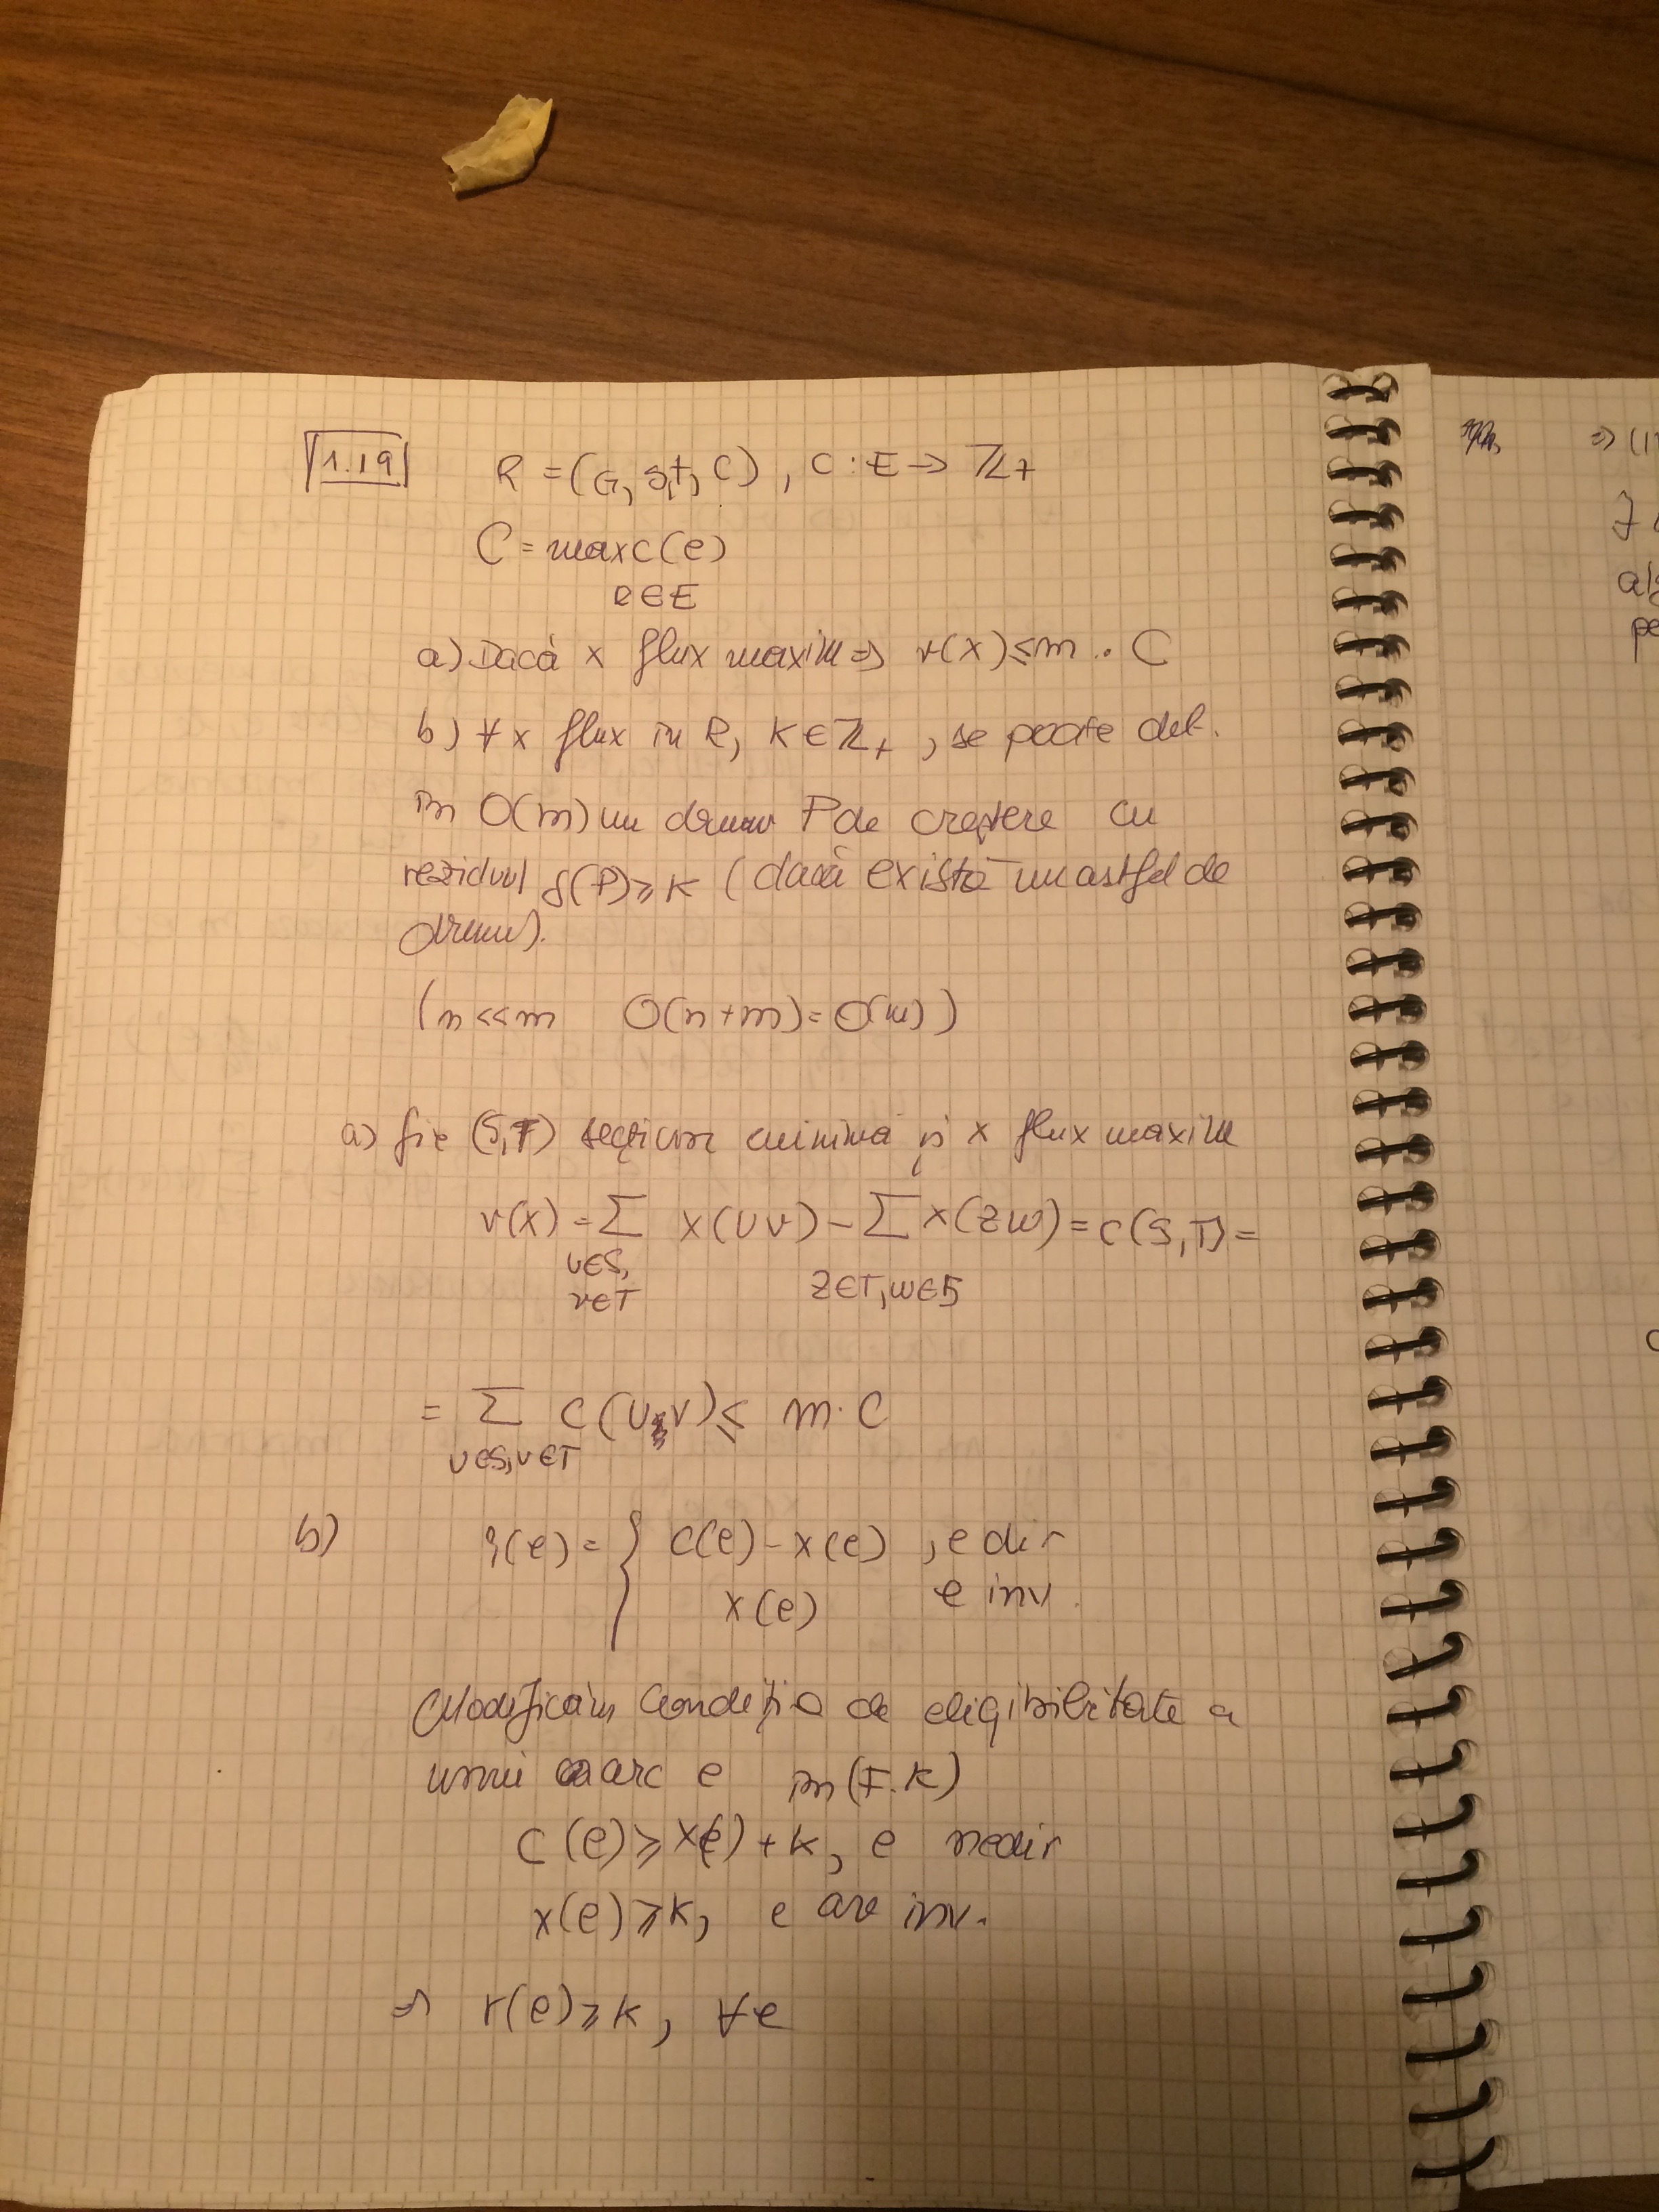 1.19 R = (G, s,t, C) , C : E → ℤ+
C = max c(e)
e∈E
a) Dacă x flux maxim ⇒ v(x) ≤ m . C
b) ∀ x flux în R, K ∈ ℤ+ , se poate det.
în O(m) un drum P de creștere cu
reziduul δ(P) ≥ K (dacă există un astfel de
drum).
(n << m O(n+m) = O(m))
a) fie (S,T) secțiune minimă și x flux maxim
v(x) = Σ x(uv) − Σ x(zw) = c(S,T) =
u∈S, v∈T z∈T, w∈S
= Σ c(u v) ≤ m · C
u∈S, v∈T
b) r(e) = { c(e) − x(e) , e dir
x(e) e inv.
Modificăm condiția de eligibilitate a
unui arc e în (F.K)
c(e) ≥ x(e) + k, e
x(e) ≥ k, e arc inv.
⇒ r(e) ≥ k, ∀e
⇒ (1
alg
pe